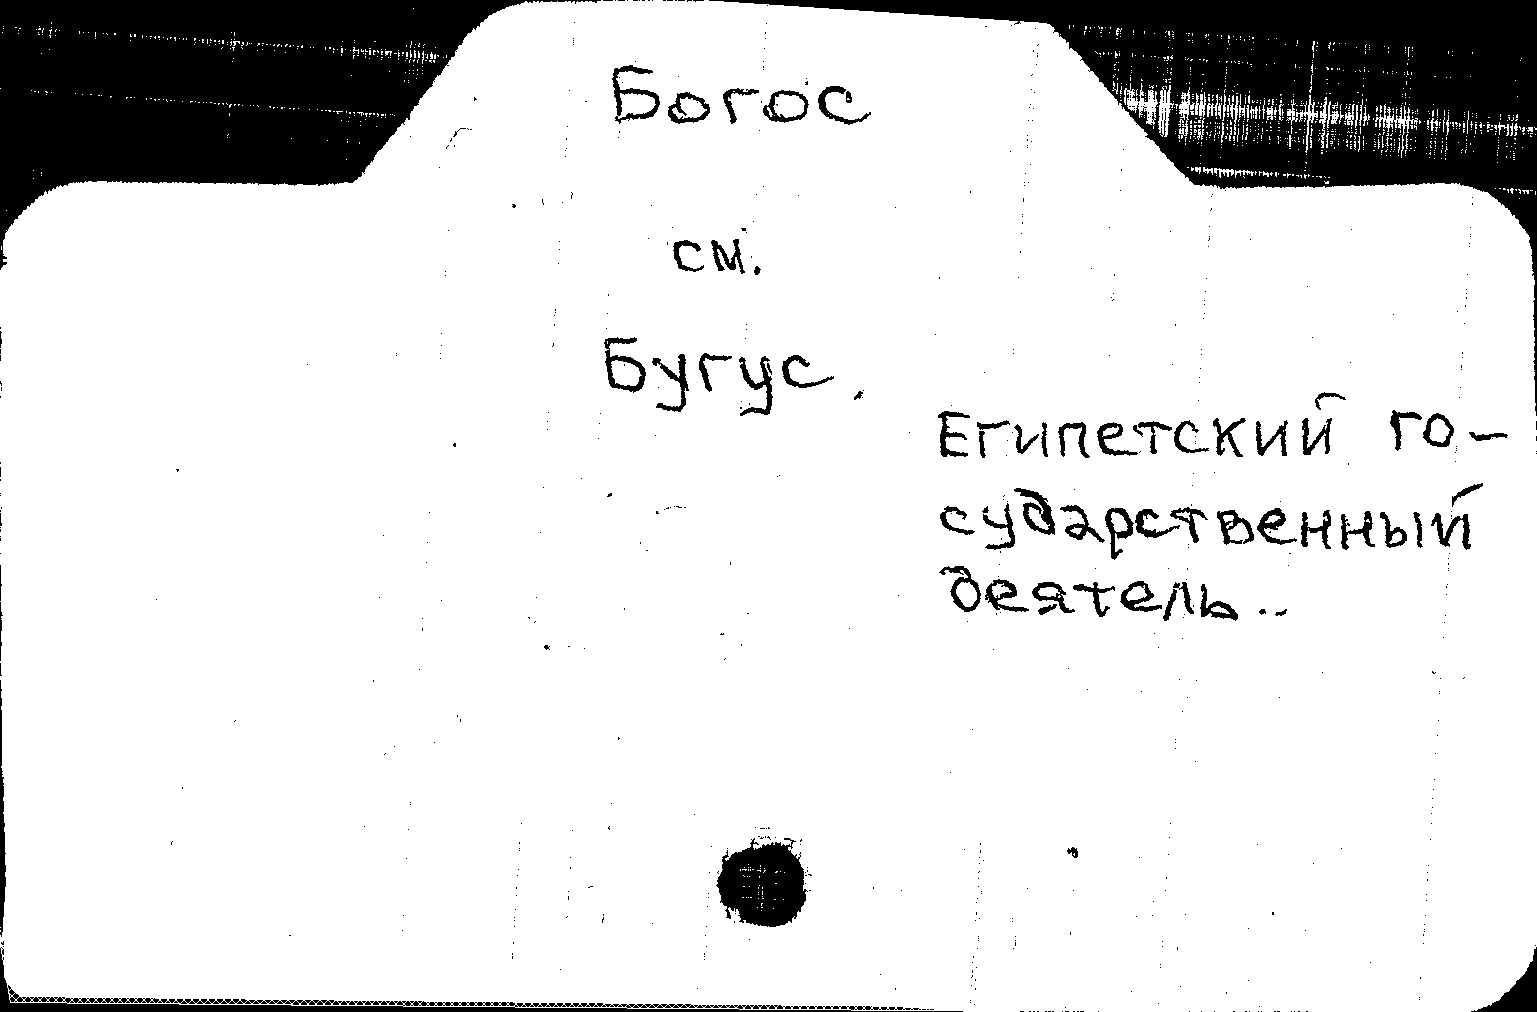 Богос
см.
Бугус.
Египетский го-
сударственный
деятель..